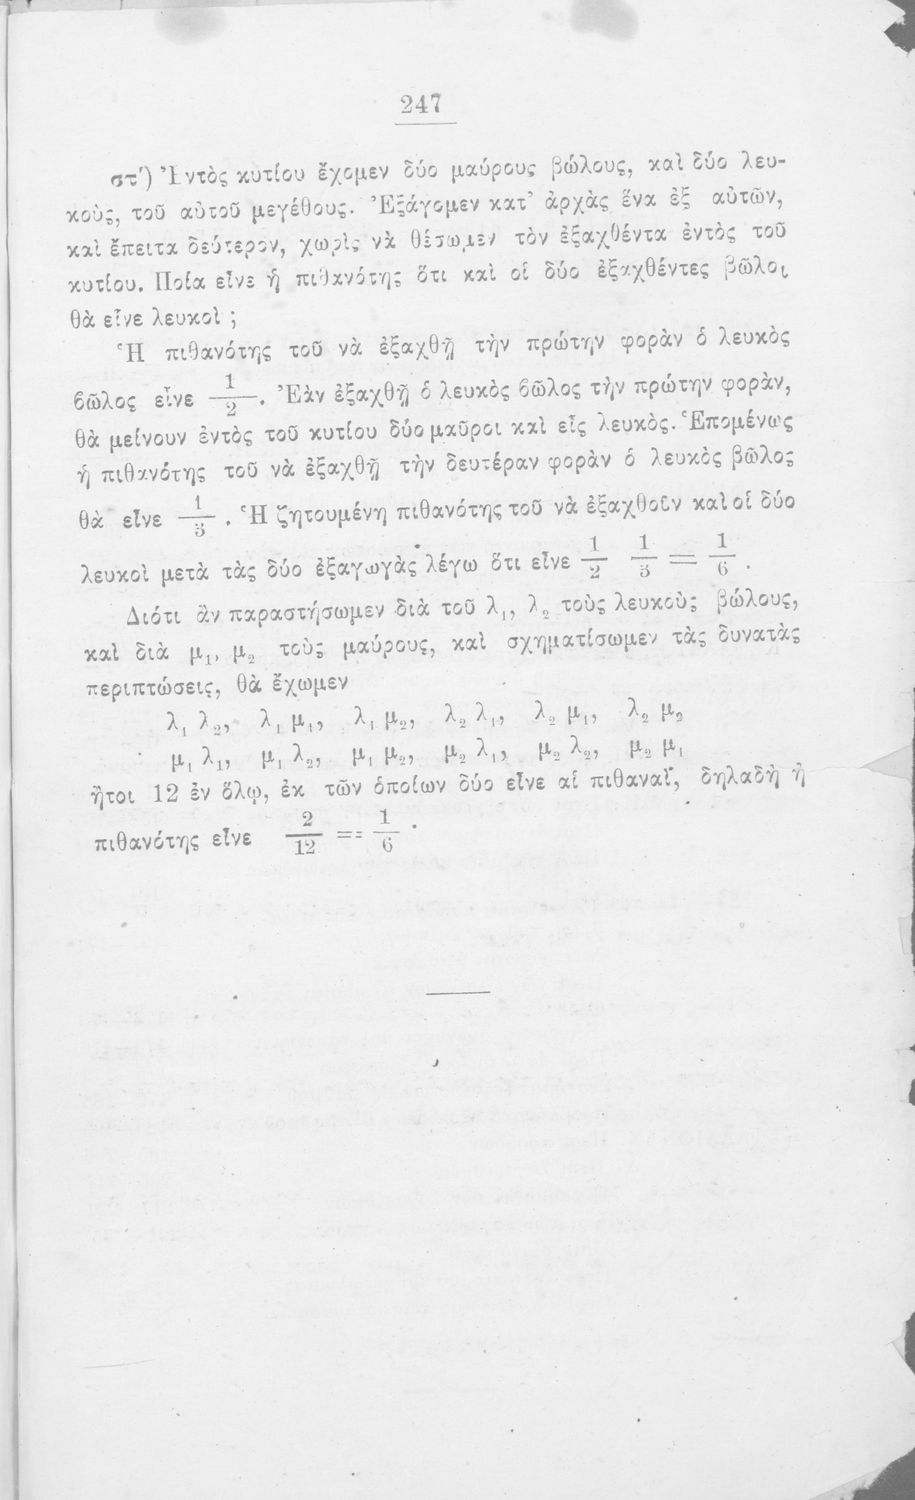 247
στʹ) Ἐντὸς κυτίου ἔχομεν δύο μαύρους βώλους, καὶ δύο λευ-
κοὺς, τοῦ αὐτοῦ μεγέθους. Ἐξάγομεν κατ’ ἀρχὰς ἕνα ἐξ αὐτῶν,
καὶ ἔπειτα δεύτερον, χωρὶς νὰ θέσωμεν τὸν ἐξαχθέντα ἐντὸς τοῦ
κυτίου. Ποία εἶνε ἡ πιθανότης ὅτι καὶ οἱ δύο ἐξαχθέντες βῶλοι
θὰ εἶνε λευκοὶ ;
Ἡ πιθανότης τοῦ νὰ ἐξαχθῇ τὴν πρώτην φορὰν ὁ λευκὸς
βῶλος εἶνε 1/2. Ἐὰν ἐξαχθῇ ὁ λευκὸς βῶλος τὴν πρώτην φορὰν,
θὰ μείνουν ἐντὸς τοῦ κυτίου δύο μαῦροι καὶ εἷς λευκὸς. Ἑπομένως
ἡ πιθανότης τοῦ νὰ ἐξαχθῇ τὴν δευτέραν φορὰν ὁ λευκὸς βῶλος
θὰ εἶνε 1/3. Ἡ ζητουμένη πιθανότης τοῦ νὰ ἐξαχθοῦν καὶ οἱ δύο
λευκοὶ μετὰ τὰς δύο ἐξαγωγὰς λέγω ὅτι εἶνε 1/2 1/3 = 1/6.
Διότι ἂν παραστήσωμεν διὰ τοῦ λ₁, λ₂ τοὺς λευκοὺς βώλους,
καὶ διὰ μ₁, μ₂ τοὺς μαύρους, καὶ σχηματίσωμεν τὰς δυνατὰς
περιπτώσεις, θὰ ἔχωμεν
λ₁ λ₂, λ₁ μ₁, λ₁ μ₂, λ₂ λ₁, λ₂ μ₁, λ₂ μ₂
μ₁ λ₁, μ₁ λ₂, μ₁ μ₂, μ₂ λ₁, μ₂ λ₂, μ₂ μ₁
ἤτοι 12 ἐν ὅλῳ, ἐκ τῶν ὁποίων δύο εἶνε αἱ πιθαναῖ, δηλαδὴ ἡ
πιθανότης εἶνε 2/12 = 1/6.